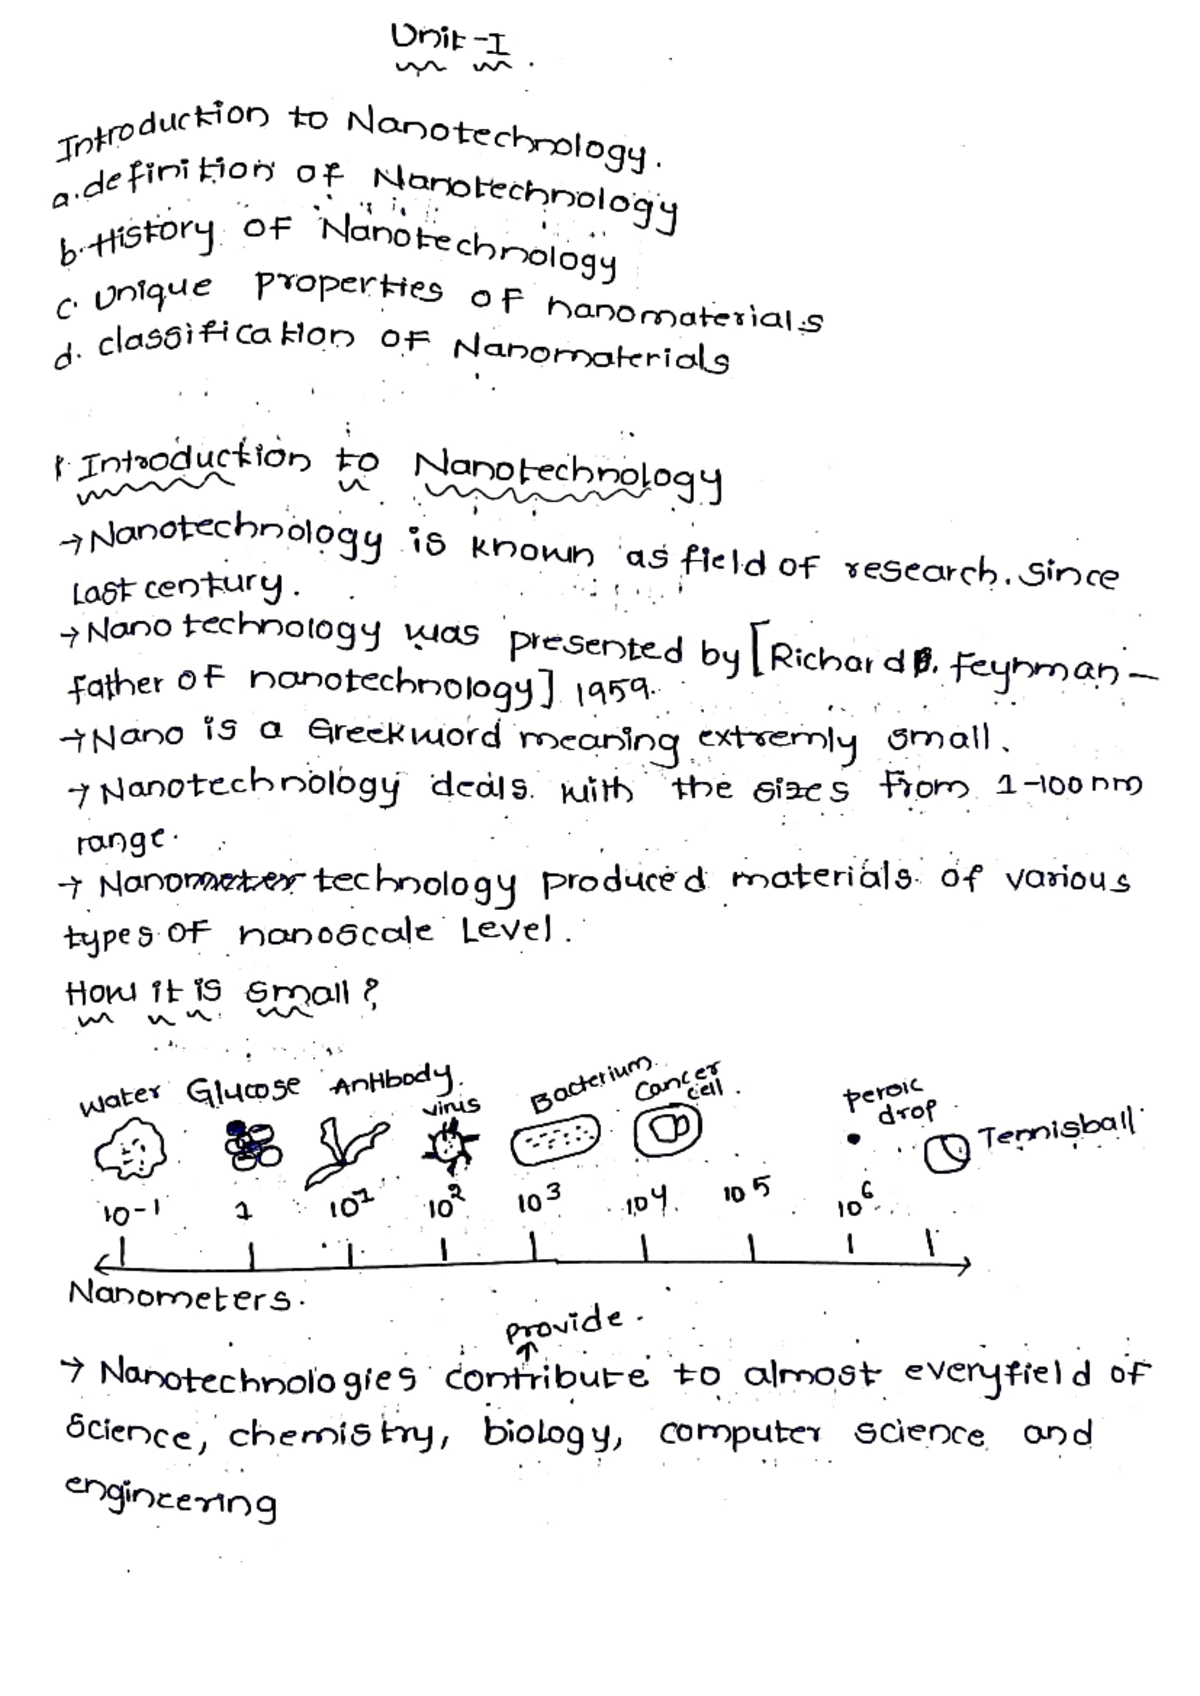 Unit-I
Introduction to Nanotechnology.
a. definition of Nanotechnology
b. History of Nanotechnology
c. unique properties of nanomaterials
d. classification of Nanomaterials
1. Introduction to Nanotechnology
→ Nanotechnology is known as field of research. since
Last century.
→ Nano technology was presented by [Richard B. Feynman -
father of nanotechnology] 1959.
→ Nano is a Greek word meaning extremly small.
→ Nanotechnology deals with the sizes from 1-100 nm
range.
→ Nanometer technology produced materials of various
types of nanoscale Level.
How it is small?
Water Glucose Antibody. virus Bacterium. Cancer cell. peroic drop Tennisball
10-1 1 10¹ 10² 10³ 10⁴ 10⁵ 10⁶
Nanometers.
provide.
→ Nanotechnologies contribute to almost everyfield of
science, chemistry, biology, computer science and
engineering